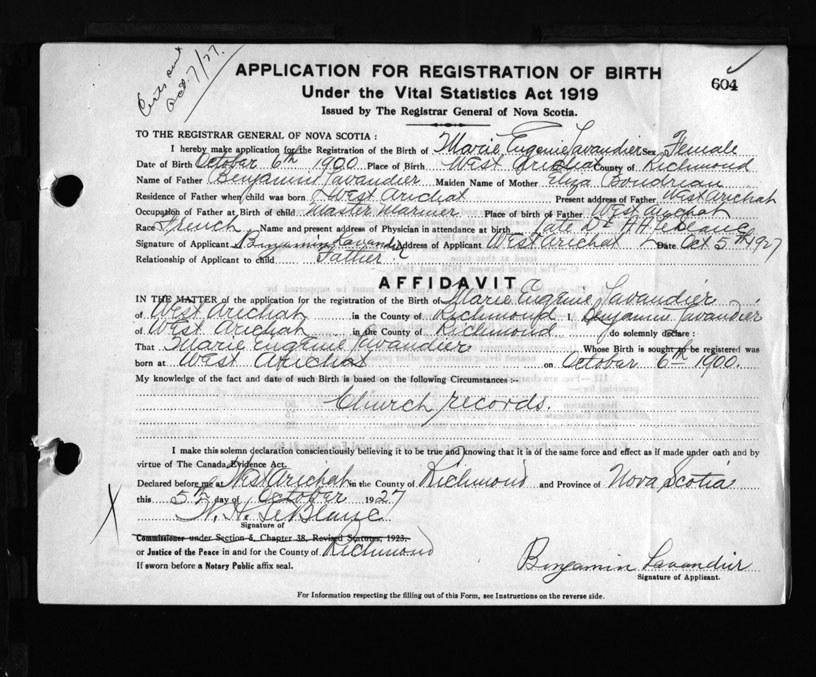 Certs sent
Oct. 7/27.
604
APPLICATION FOR REGISTRATION OF BIRTH
Under the Vital Statistics Act 1919
Issued by The Registrar General of Nova Scotia.
TO THE REGISTRAR GENERAL OF NOVA SCOTIA :
I hereby make application for the Registration of the Birth of Marie Eugenie Lavandier Sex Female
Date of Birth October 6th 1900 Place of Birth West Arichat County of Richmond
Name of Father Benjamin Lavandier Maiden Name of Mother Eliza Boudreau
Residence of Father when child was born West Arichat Present address of Father West Arichat
Occupation of Father at Birth of child Master Mariner Place of birth of Father West Arichat
Race French Name and present address of Physician in attendance at birth Late Dr. LeBlanc
Signature of Applicant Benjamin Lavandier Address of Applicant West Arichat Date Oct 5th 1927
Relationship of Applicant to child Father
AFFIDAVIT
IN THE MATTER of the application for the registration of the Birth of Marie Eugenie Lavandier
of West Arichat in the County of Richmond I, Benjamin Lavandier
of West Arichat in the County of Richmond do solemnly declare :
That Marie Eugenie Lavandier Whose Birth is sought to be registered was
born at West Arichat on October 6th 1900.
My knowledge of the fact and date of such Birth is based on the following Circumstances :-
Church records.
I make this solemn declaration conscientiously believing it to be true and knowing that it is of the same force and effect as if made under oath and by
virtue of The Canada Evidence Act.
Declared before me at West Arichat in the County of Richmond and Province of Nova Scotia
this 5th day of October 1927
X W. H. LeBlanc
Signature of
Commissioner under Section 5, Chapter 38, Revised Statutes, 1923.
or Justice of the Peace in and for the County of Richmond
If sworn before a Notary Public affix seal.
Benjamin Lavandier
Signature of Applicant.
For Information respecting the filling out of this Form, see Instructions on the reverse side.